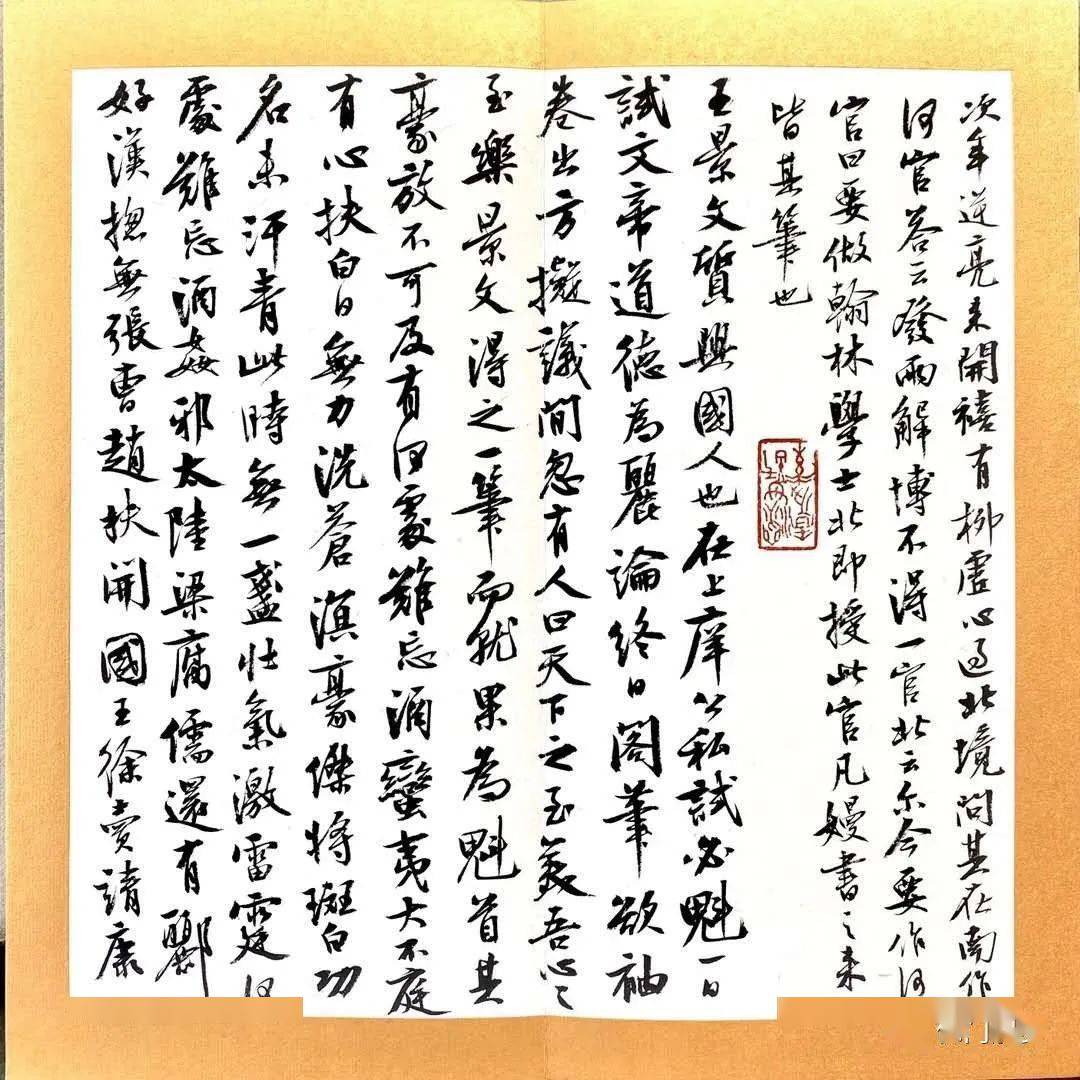 次年逆亮来開禧有柳虚心過北境問其在南作
何官答云發兩解博不得一官北云尔今要作何
官曰要做翰林學士北即授此官凡嫚書之来
皆其筆也
王景文質興國人也在上庠公私試必魁一日
試文帝道德為麗論終日閣筆欲袖
卷出方擬議間忽有人曰天下之至美吾心之
至樂景文得之一筆而就果為魁首其
豪放不可及有何處難忘酒蠻夷大不庭
有心扶白日無力洗蒼溟豪傑將斑白功
名未汗青此時無一盞壯氣激雷霆何
處難忘酒姦邪太陸梁腐儒還有酈
好漢揔無張曹趙扶開國王徐賣靖康